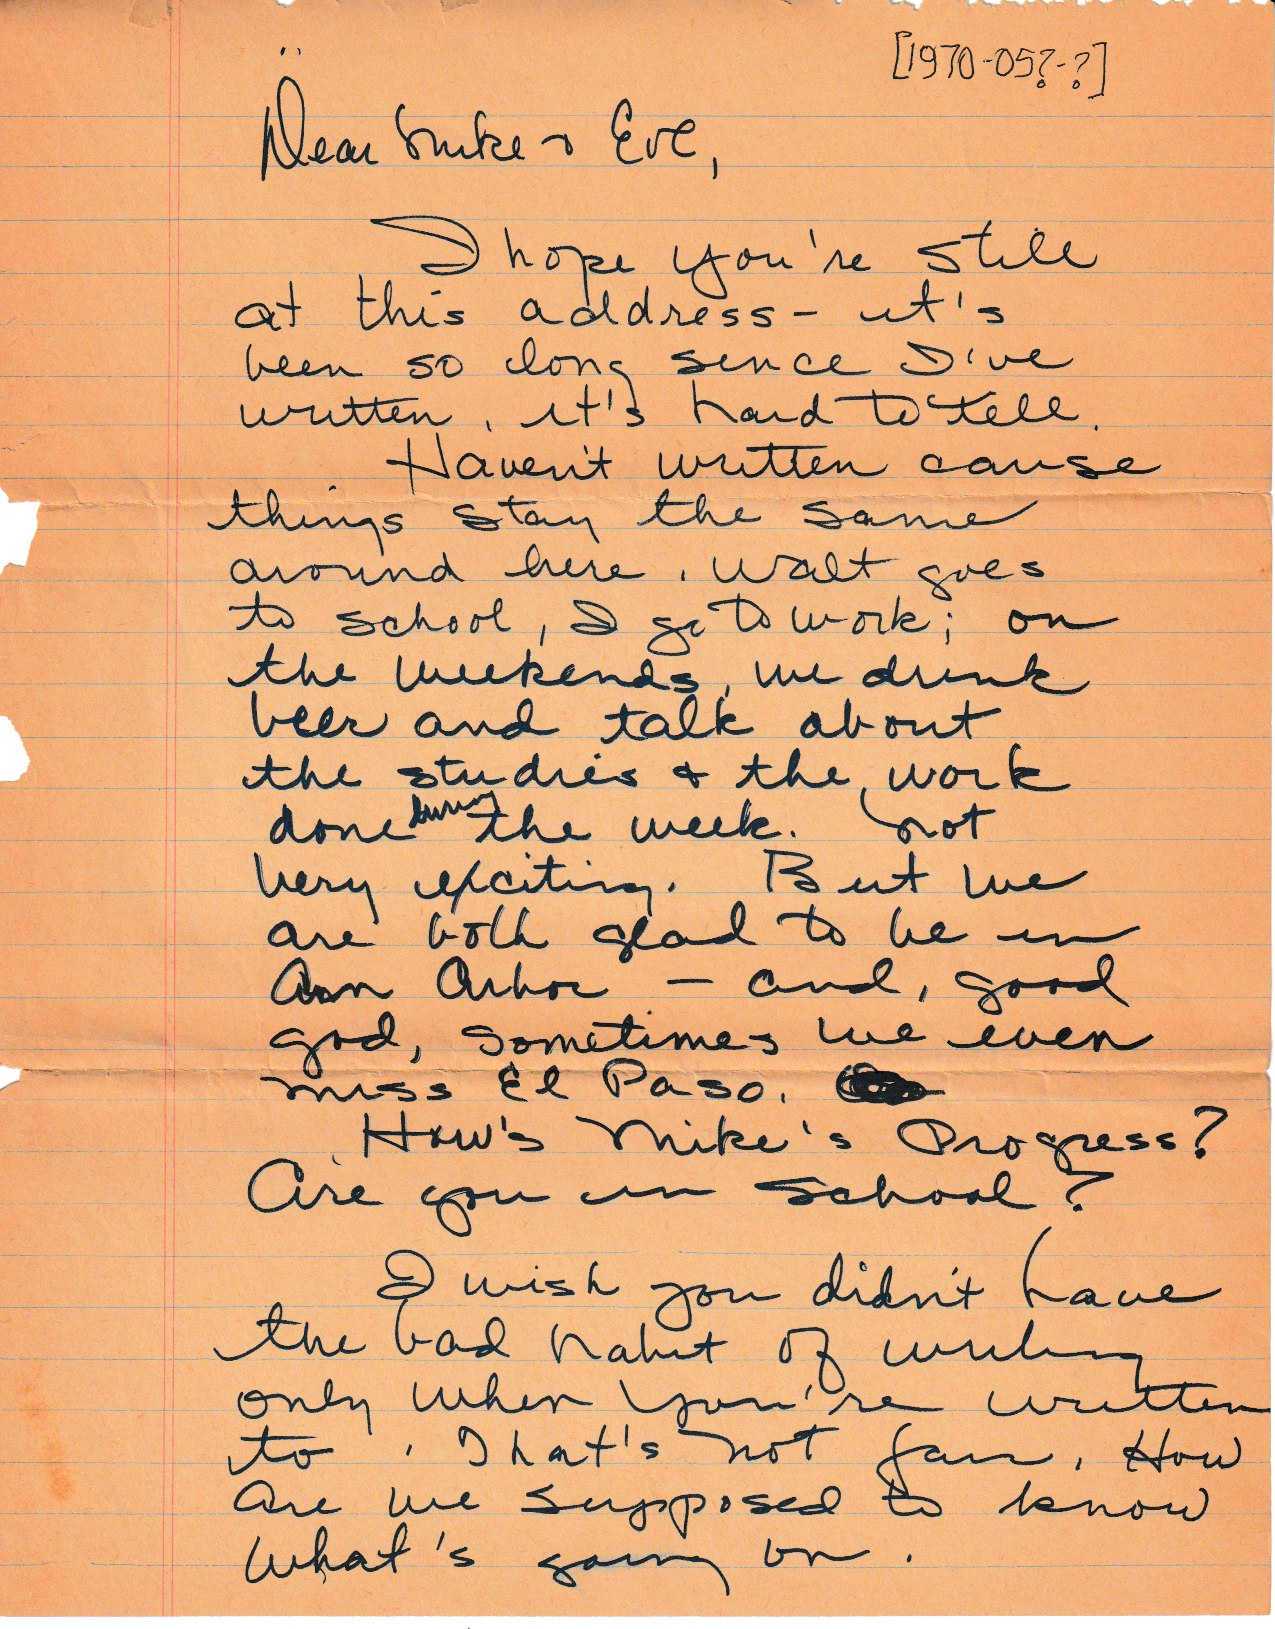 [1970-05?-?]
Dear Mike + Eve,
I hope you're still
at this address - it's
been so long since I've
written, it's hard to tell.
Haven't written cause
things stay the same
around here. Walt goes
to school, I go to work; on
the weekends, we drink
beer and talk about
the studies & the work
done during the week. Not
very exciting. But we
are both glad to be in
Ann Arbor - and, good
god, sometimes we even
miss El Paso.
How's Mike's Progress?
Are you in school?
I wish you didn't have
the bad habit of writing
only when you're written
to. That's not fair. How
are we supposed to know
what's going on.